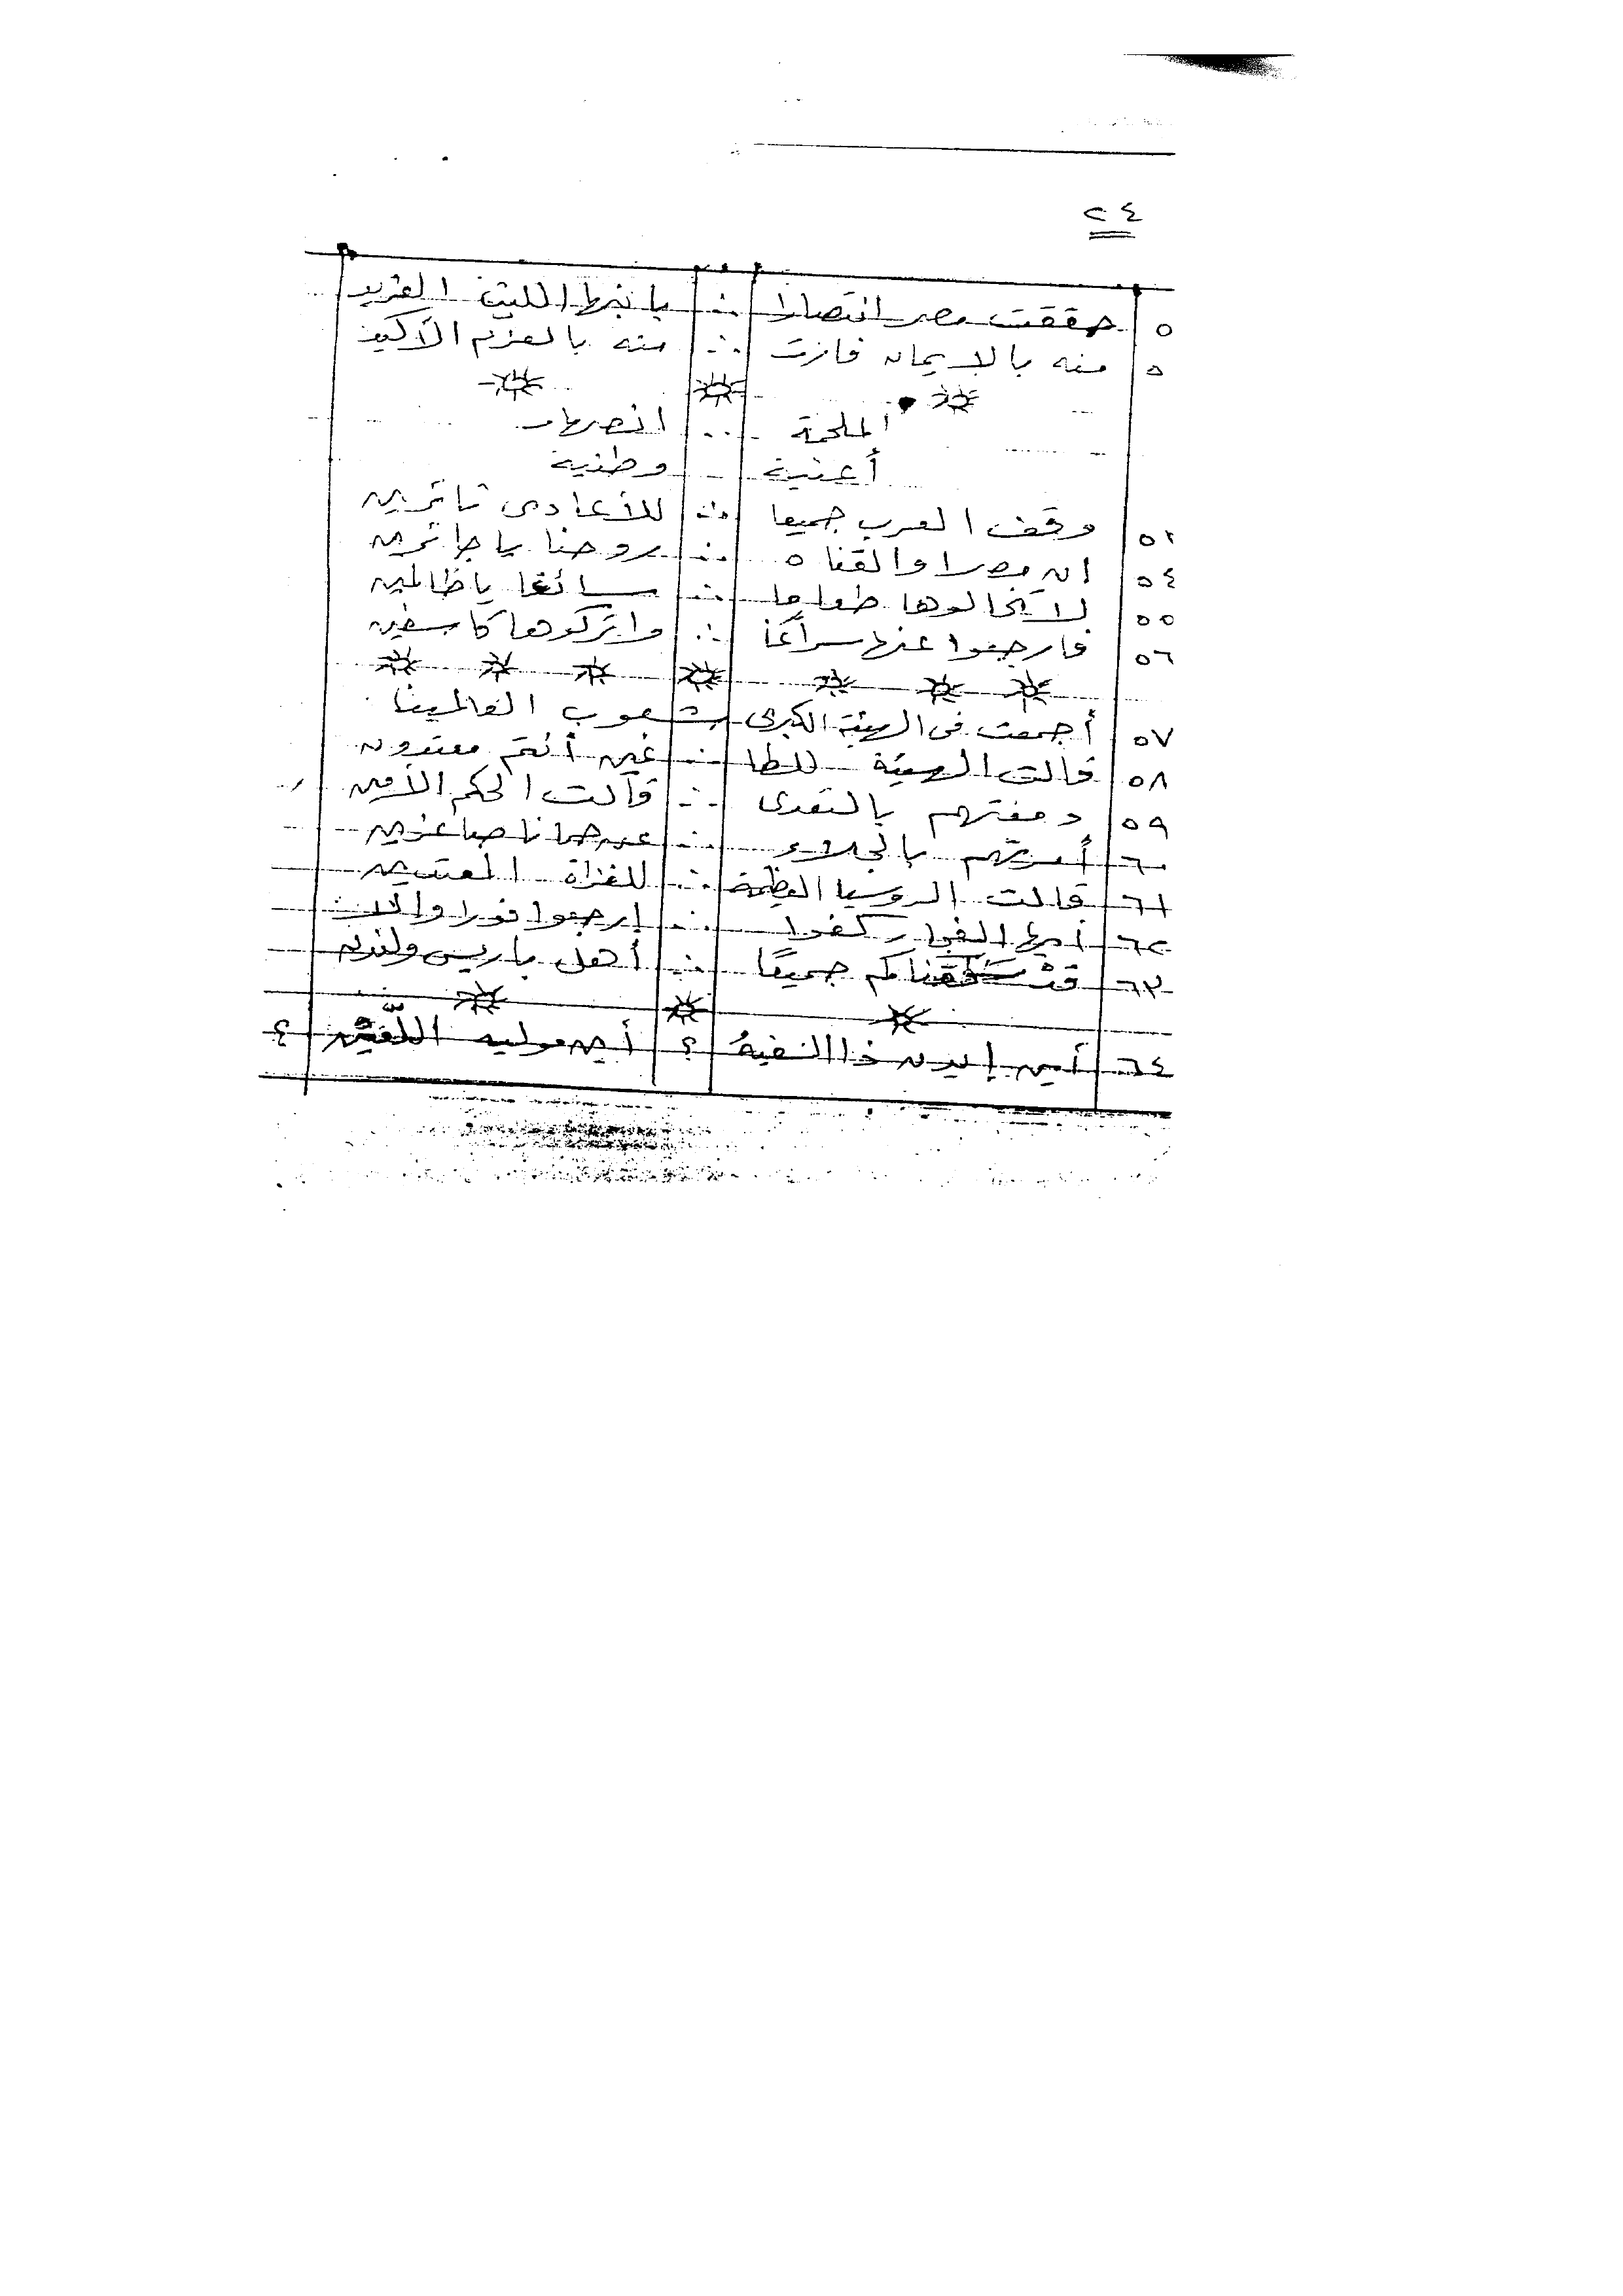 ٢٤
٥ حققت مصر انتصارا ∴ يا بنها الليث الفريد
٥ منه بالإيمان فازت ∴ منه بالعزم الأكيد
الملحمة .. انصهار
أغنية - وطنية
٥٢ وقف العرب جميعا ∴ للأعادى ثائرين
٥٤ ان مصرا والقناه ∴ روحنا يا جائرين
٥٥ لا تخالوها طعاما ∴ سائغا يا ظالمين
٥٦ فارجعوا عنها سراعًا ∴ واتركوها كاسفين
٥٧ أجمعت فى الهيئة الكبرى شعوب العالمينا
٥٨ قالت الهيئة للطا ∴ غين أنتم معتدون
٥٩ دمغتهم بالتعدى ∴ قالت الحكم الأمين
٦٠ أمرتهم بالجلاء ∴ عن حمانا صاغرين
٦١ قالت الروسيا العظيمة ∴ للغزاة المعتدين
٦٢ أيها الفجار كفوا ∴ إرجعوا فورا والآن
٦٣ قد سحقناكم جميعًا ∴ أهل باريس ولندن
٦٤ أين إيدن ذا السفيه ؟ أين موليه اللعين ؟